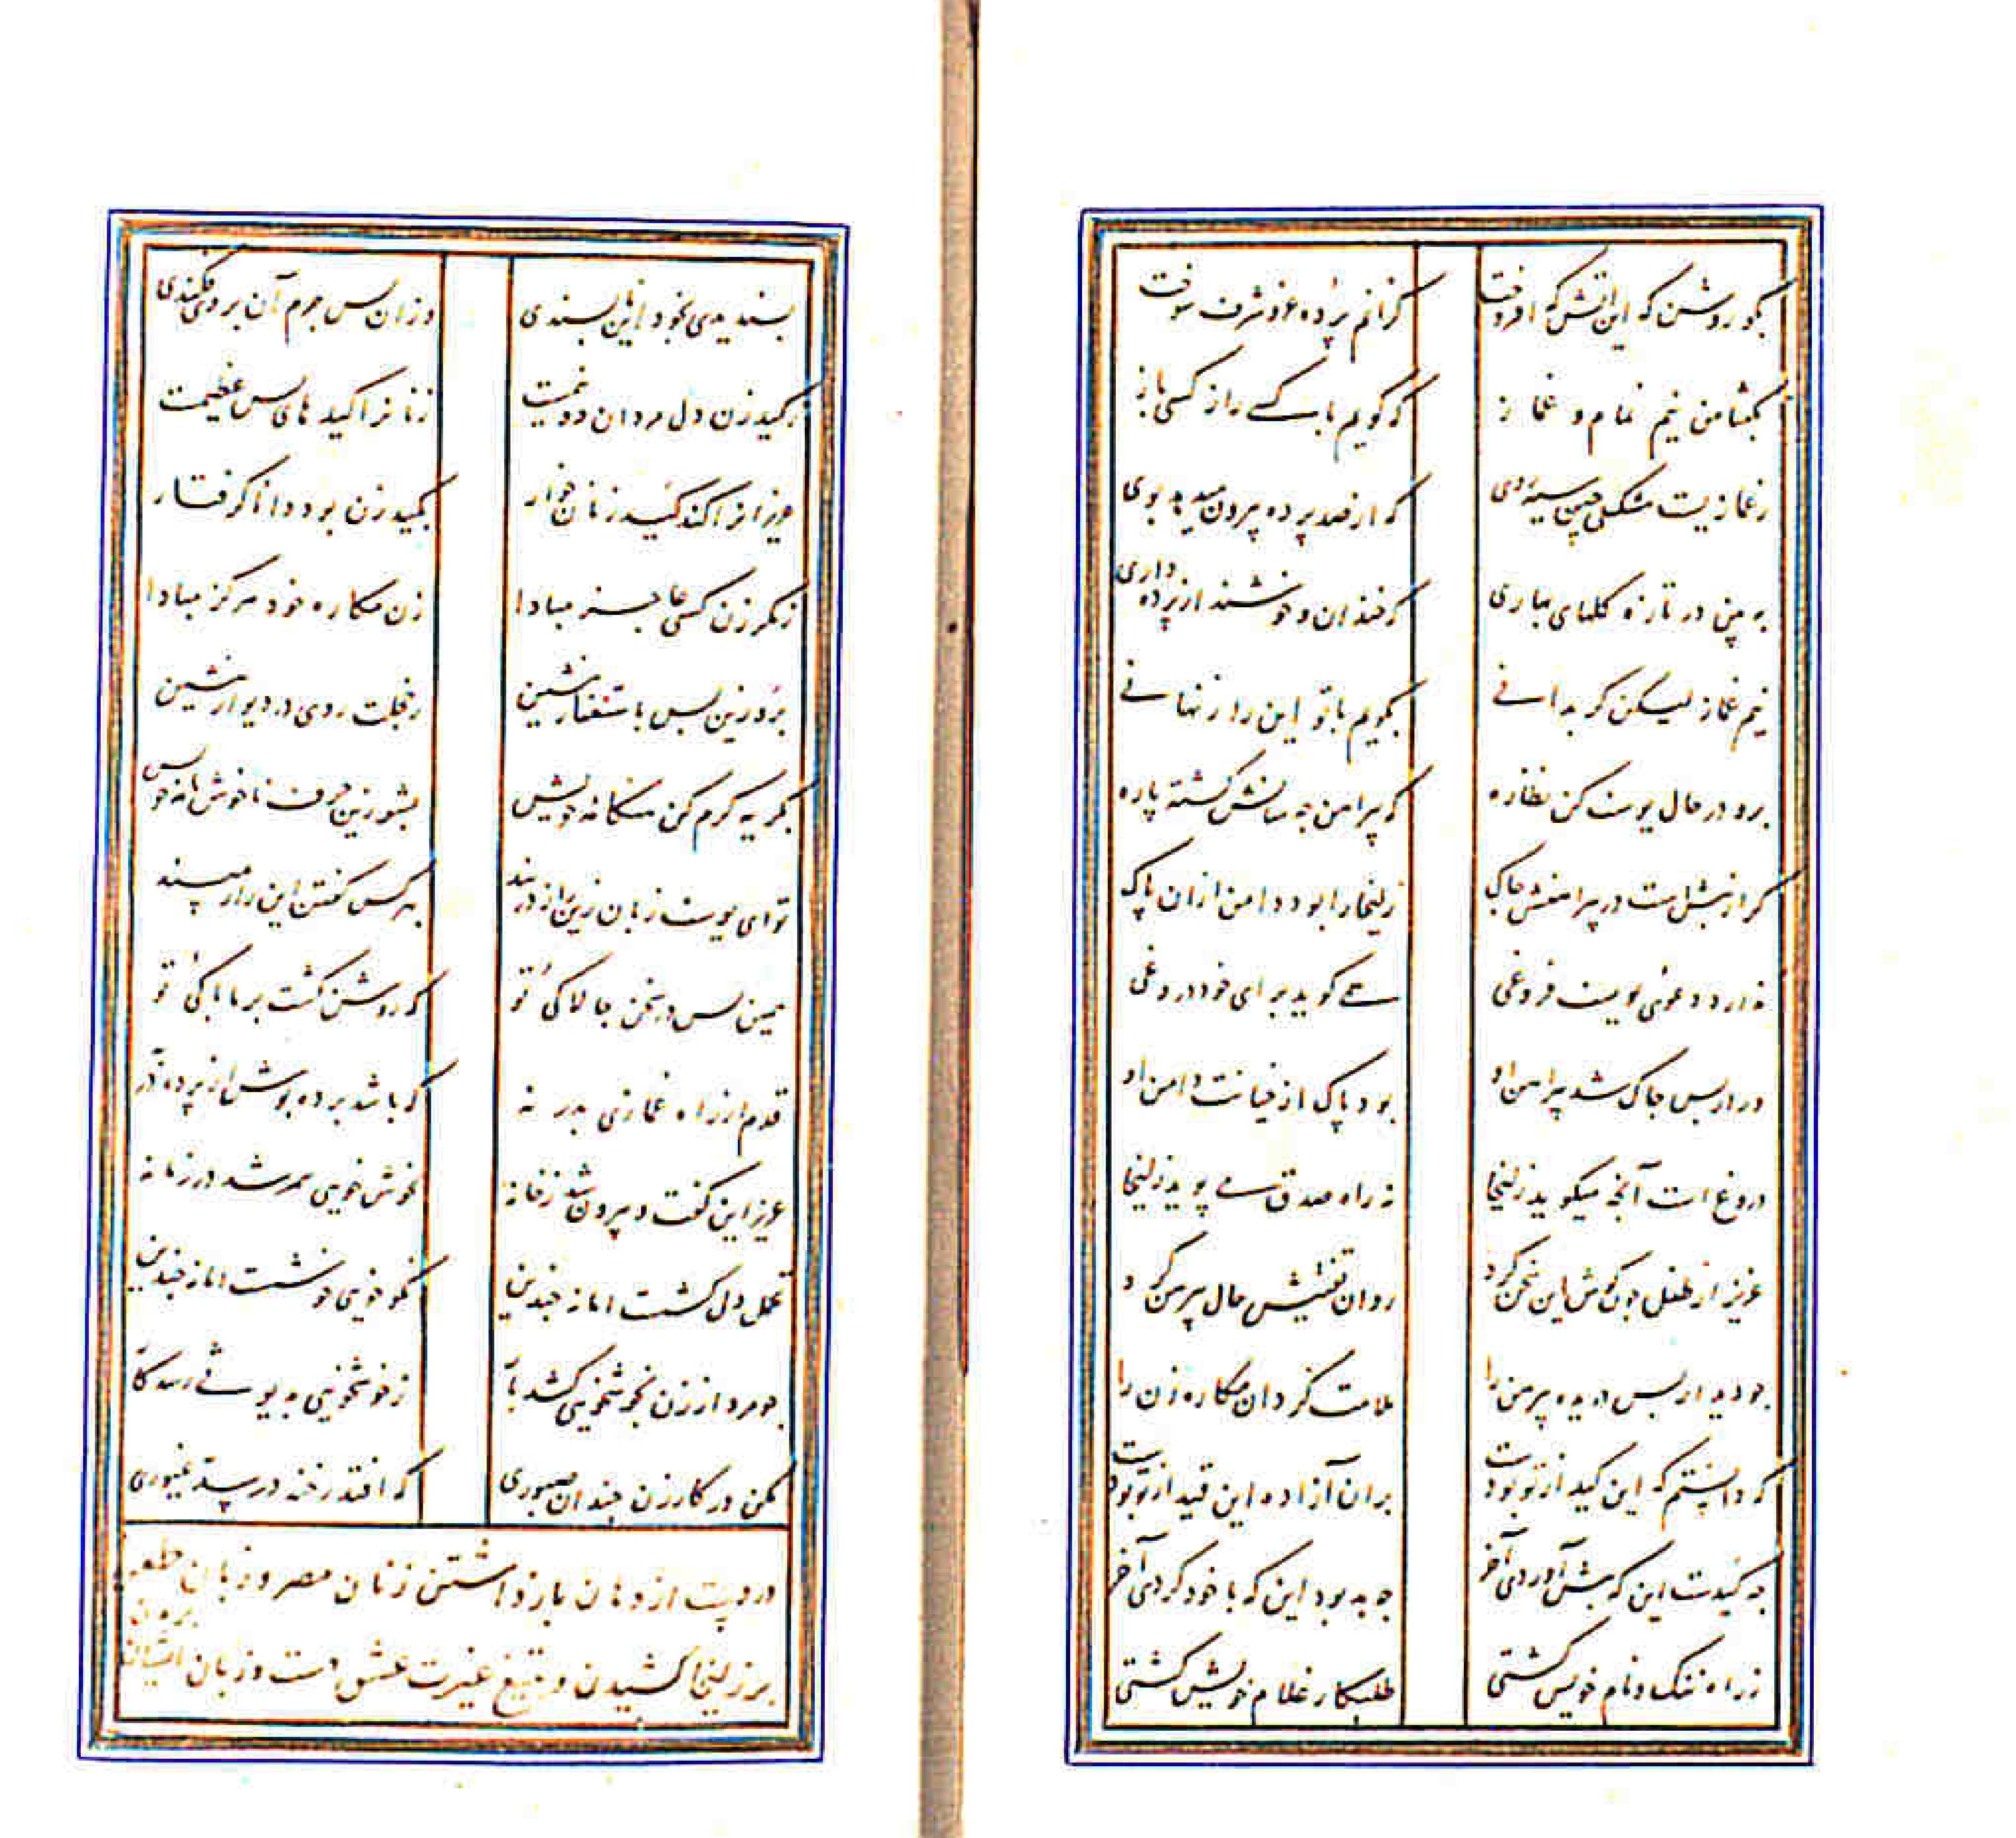 بکو روشن که این آتش که افروخت
کزانم پرده عز و شرف سوخت
بکفتا من نیم نمام و غماز
که کویم با کسی راز کسی باز
ز غمازیست مشک چین سیه روی
که از صد پرده بیرون میدهد بوی
به بین در تازه کلهای بهاری
که خندان و خوشند از پرده داری
نیم غماز لیکن کر بدانی
بکویم با تو این راز نهانی
برو در حال یوسف کن نظاره
که پیراهن چه سانش کشته پاره
کر از پیش است در پیراهنش چاک
زلیخا را بود دامن ازان پاک
ندارد دعوی یوسف فروغی
همی کوید برای خود دروغی
ور از پس چاک شد پیراهن او
بود پاک از خیانت دامن او
دروغ است آنچه میکوید زلیخا
نه راه صدق می پوید زلیخا
عزیز از طفل چون کوش این سخن کرد
روان تفتیش حال پیرهن کرد
چو دید از پس دریده پیرهن را
ملامت کرد آن مکاره زن را
که دانستم که این کید از تو بودست
بران آزاده این قید از تو بودست
چه کیدست این که پیش آوردی آخر
چه بد بود این که با خود کردی آخر
ز راه ننک و نام خویش کشتی
طلبکار غلام خویش کشتی
پسندیدی بخود این ناپسندی
وزان پس جرم آن بر وی فکندی
ز کید زن دل مردان دو نیمست
زنانرا کیدهای بس عظیمست
عزیزانرا کند کید زنان خوار
بکید زن بود دانا کرفتار
ز مکر زن کسی عاجز مبادا
زن مکاره خود هرکز مبادا
برو زین پس باستغفار بنشین
ز خجلت روی در دیوار بنشین
بکریه کرم کن هنکامه خویش
بشو زین حرف ناخوش نامه خویش
تو ای یوسف زبان زین راز دربند
بهر کس کفتن این راز مپسند
همین بس در سخن چالاکی تو
که روشن کشت بر ما پاکی تو
قدم از راه غمازی بدر نه
که باشد پرده پوش از پرده در به
عزیز این کفت و بیرون شد ز خانه
بخوش خویی سمر شد در زمانه
تحمل دلکشست اما نه چندین
نکو خویی خوشست اما نه چندین
چو مرد از زن بخوشخویی کشد بار
ز خوشخویی به بد رویی رسد کار
مکن در کار زن چندان صبوری
که افتد رخنه در سد غیوری
در دست از دهان باز داشتن زنان مصر و زبان طعن
بر زلیخا کشیدن و بتیغ غیرت عشق دست و زبان ایشان بریدن